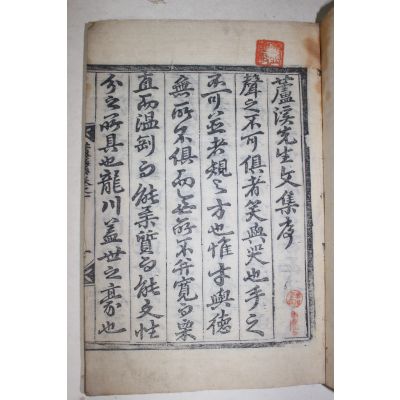 蘆溪先生文集序
聲之不可俱者笑與哭也手之
不可並者規與方也惟才與德
無所不俱而無所不弁寬而栗
直而溫剛而能柔質而能文性
分之所具也龍川蓋世之豪也